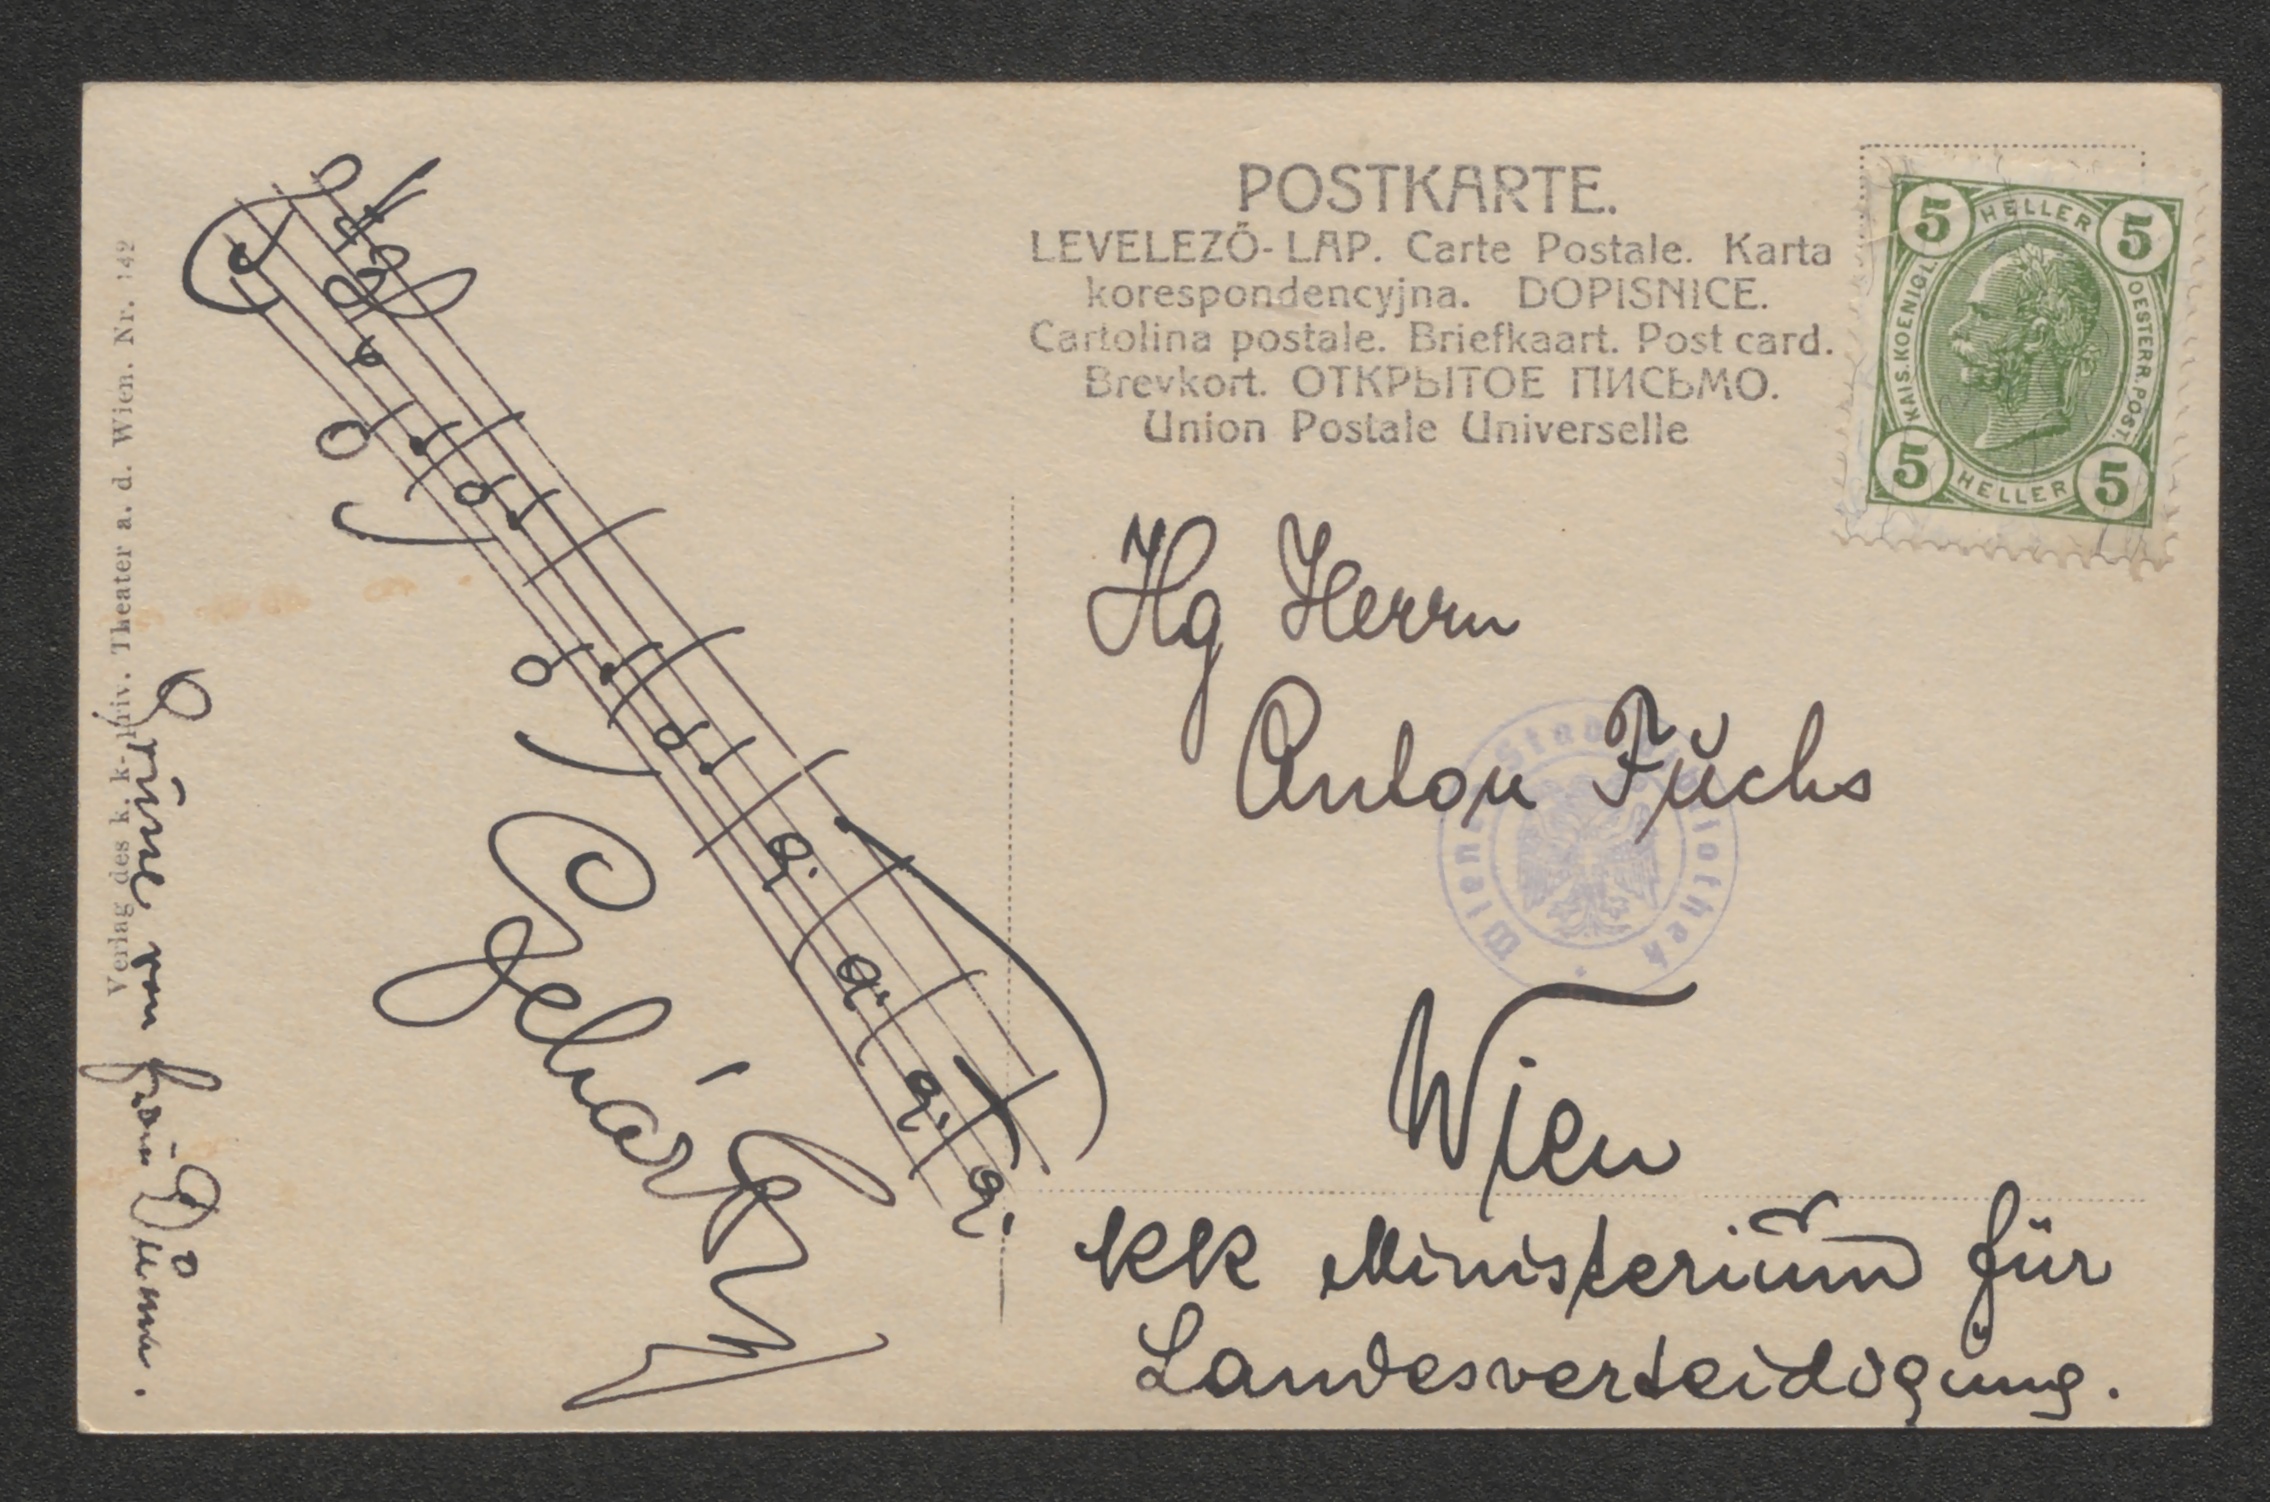 POSTKARTE.
LEVELEZŐ-LAP. Carte Postale. Karta
korespondencyjna. DOPISNICE.
Cartolina postale. Briefkaart. Post card.
Brevkort. ОТКРЫТОЕ ПИСЬМО.
Union Postale Universelle
5 HELLER 5
KAIS. KOENIGL. OESTERR. POST.
5 HELLER 5
Hg Herrn
Anton Fuchs
Wien
KK Ministerium für
Landesverteidigung.
Wien Stadtbibliothek
Lehár
Grüsse von
Verlag des k. k. priv. Theater a. d. Wien. Nr. 142